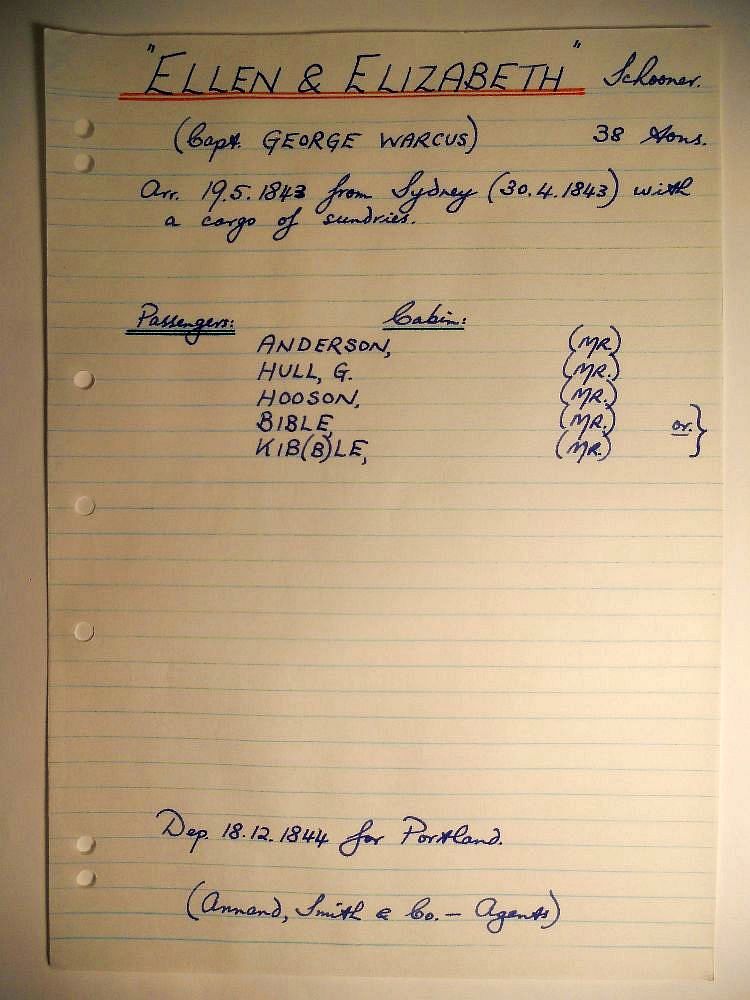 "ELLEN & ELIZABETH" Schooner.
(Capt. GEORGE WARCUS) 38 tons.
Arr. 19.5.1843 from Sydney (30.4.1843) with
a cargo of sundries.
Passengers: Cabin:
ANDERSON, (MR.)
HULL, G. (MR.)
HOOSON, (MR.)
BIBLE, (MR.) or. }
KIB(B)LE, (MR.)
Dep. 18.12.1844 for Portland.
(Annand, Smith & Co. — Agents)